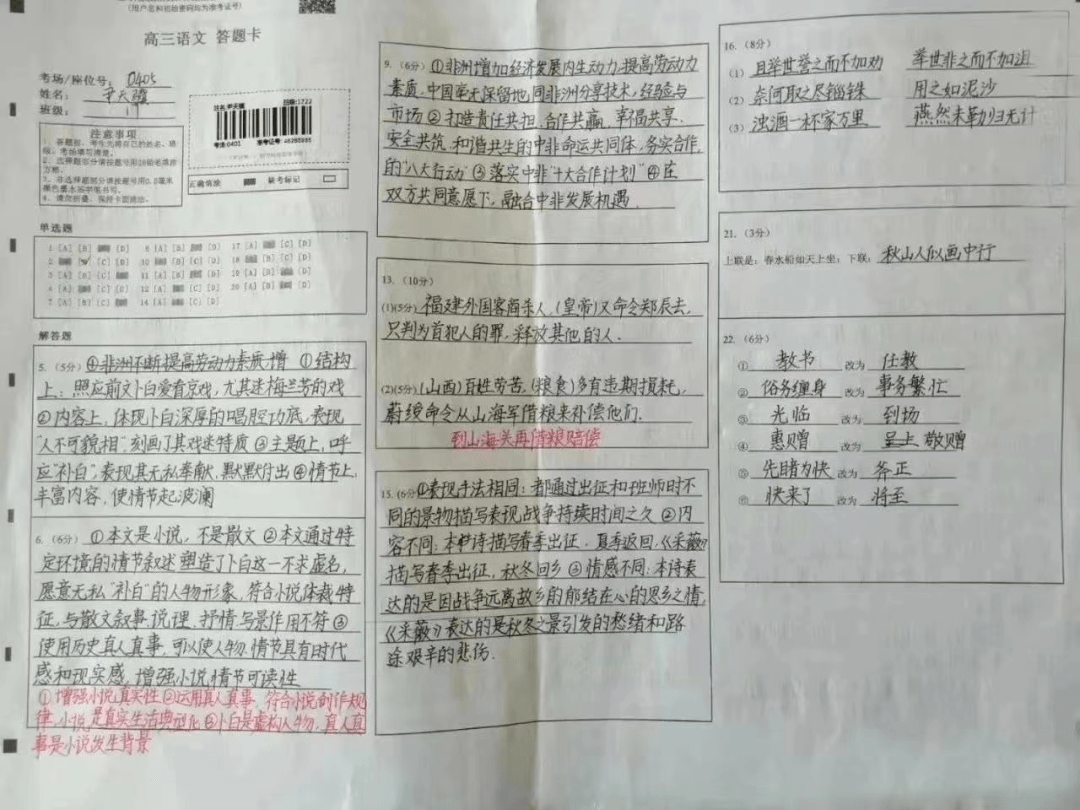 (用户名和初始密码均为准考证号)
高三语文 答题卡
考场/座位号: 0405
姓名:
班级: 17
注意事项
正确填涂
缺考标记
单选题
解答题
5. (5分) ④非洲不断提高劳动力素质,增 ①结构
上:照应前文卜白爱看京戏,尤其迷梅兰芳的戏
②内容上,体现卜白深厚的唱腔功底,表现
"人不可貌相",刻画了其戏迷特质 ③主题上,呼
应"补白",表现其无私奉献,默默付出 ④情节上,
丰富内容,使情节起波澜
6. (6分) ①本文是小说,不是散文 ②本文通过特
定环境的情节叙述塑造了卜白这一不求虚名,
愿意无私"补白"的人物形象,符合小说体裁特
征,与散文叙事说理,抒情写景作用不符 ③
使用历史真人真事,可以使人物,情节具有时代
感和现实感,增强小说情节可读性
①增强小说真实性 ②运用真人真事,符合小说创作规
律,小说是真实生活典型化 ③卜白是虚构人物,真人真
事是小说发生背景
9. (6分) ①非洲增加经济发展内生动力,提高劳动力
素质,中国毫无保留地同非洲分享技术,经验与
市场 ②打造责任共担,合作共赢,幸福共享,
安全共筑,和谐共生的中非命运共同体,务实合作
的"八大行动" ③落实中非"十大合作计划" ④在
双方共同意愿下,融合中非发展机遇.
13. (10分)
(1)(5分) 福建外国客商杀人,(皇帝)又命令郑辰去,
只判为首犯人的罪,释放其他的人.
(2)(5分) (山西)百姓劳苦,(粮食)多有违期损耗,
蔚绶命令从山海军借粮来补偿他们.
到山海关再借粮赔偿
15. (6分) ①表现手法相同:都通过出征和班师时不
同的景物描写表现战争持续时间之久 ②内
容不同:本诗描写春季出征,夏季返回,《采薇》
描写春季出征,秋冬回乡 ③情感不同:本诗表
达的是因战争远离故乡的郁结在心的思乡之情,
《采薇》表达的是秋冬之景引发的愁绪和路
途艰辛的悲伤.
16. (8分)
(1) 且举世誉之而不加劝 举世非之而不加沮
(2) 奈何取之尽锱铢 用之如泥沙
(3) 浊酒一杯家万里 燕然未勒归无计
21. (3分)
上联是:春水船如天上坐;下联: 秋山人似画中行
22. (6分)
① 教书 改为 任教
② 俗务缠身 改为 事务繁忙
③ 光临 改为 到场
④ 惠赠 改为 呈上 敬赠
⑤ 先睹为快 改为 斧正
⑥ 快来了 改为 将至